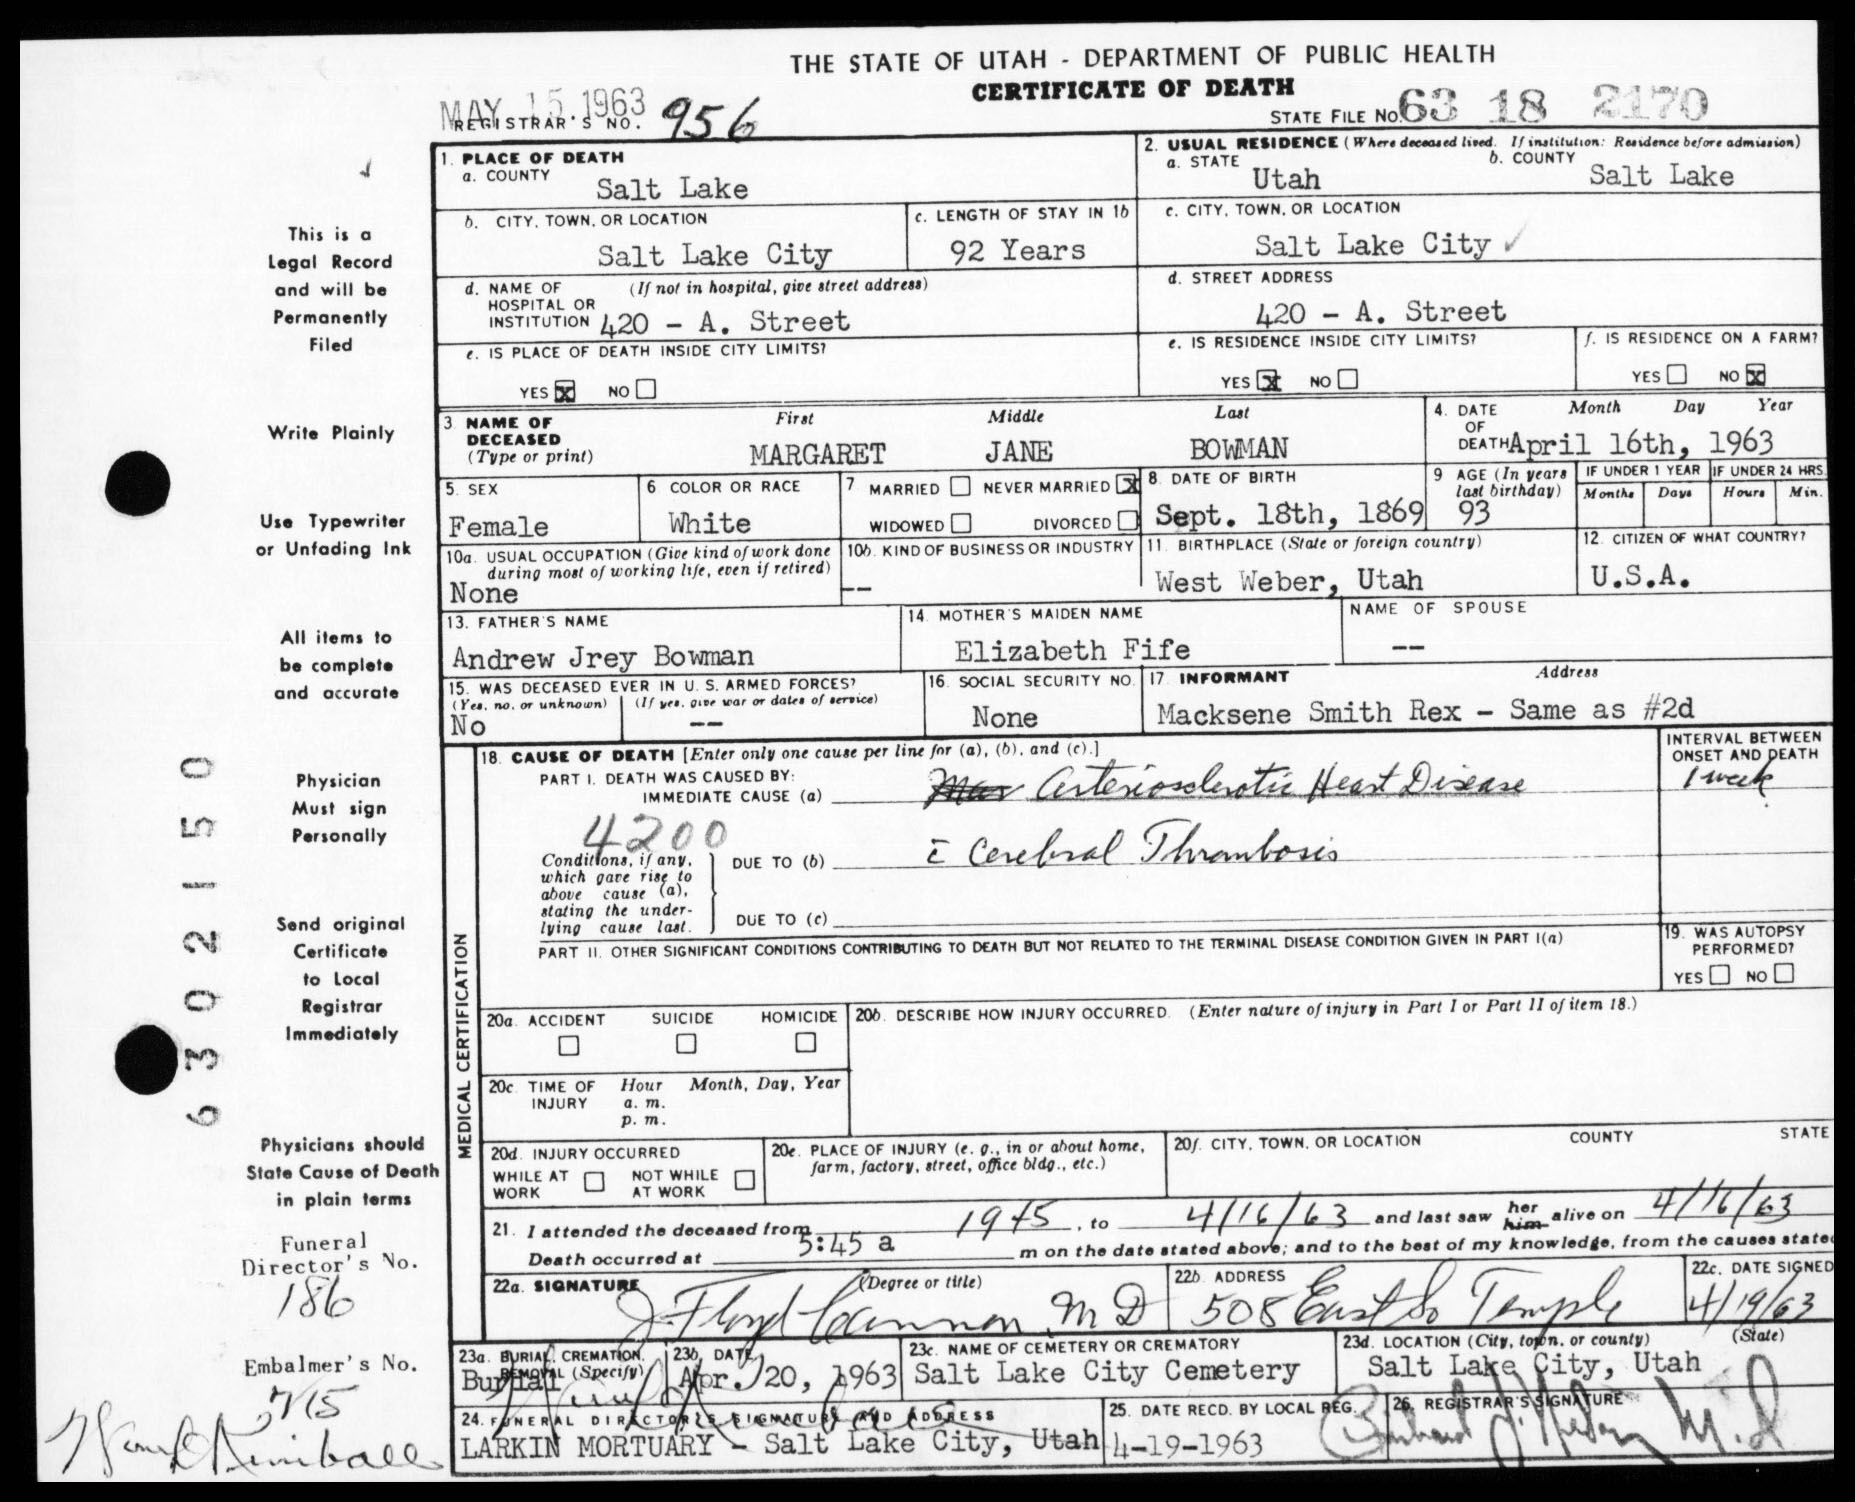 THE STATE OF UTAH - DEPARTMENT OF PUBLIC HEALTH
CERTIFICATE OF DEATH
MAY 15.1963
REGISTRAR'S NO. 956
STATE FILE NO. 63 18 2170
1. PLACE OF DEATH
a. COUNTY
Salt Lake
2. USUAL RESIDENCE (Where deceased lived. If institution: Residence before admission)
a. STATE b. COUNTY
Utah Salt Lake
b. CITY, TOWN, OR LOCATION
Salt Lake City
c. LENGTH OF STAY IN 1b
92 Years
c. CITY, TOWN, OR LOCATION
Salt Lake City
d. NAME OF HOSPITAL OR INSTITUTION (If not in hospital, give street address)
420 - A. Street
d. STREET ADDRESS
420 - A. Street
e. IS PLACE OF DEATH INSIDE CITY LIMITS?
YES X NO
e. IS RESIDENCE INSIDE CITY LIMITS?
YES X NO
f. IS RESIDENCE ON A FARM?
YES NO X
3. NAME OF DECEASED (Type or print)
First Middle Last
MARGARET JANE BOWMAN
4. DATE OF DEATH Month Day Year
April 16th, 1963
5. SEX
Female
6 COLOR OR RACE
White
7 MARRIED NEVER MARRIED X
WIDOWED DIVORCED
8. DATE OF BIRTH
Sept. 18th, 1869
9 AGE (In years last birthday)
93
IF UNDER 1 YEAR
Months Days
IF UNDER 24 HRS.
Hours Min.
10a. USUAL OCCUPATION (Give kind of work done during most of working life, even if retired)
None
10b. KIND OF BUSINESS OR INDUSTRY
--
11. BIRTHPLACE (State or foreign country)
West Weber, Utah
12. CITIZEN OF WHAT COUNTRY?
U.S.A.
13. FATHER'S NAME
Andrew Jrey Bowman
14. MOTHER'S MAIDEN NAME
Elizabeth Fife
NAME OF SPOUSE
--
15. WAS DECEASED EVER IN U.S. ARMED FORCES?
(Yes, no, or unknown) (If yes, give war or dates of service)
No --
16. SOCIAL SECURITY NO.
None
17 INFORMANT Address
Macksene Smith Rex - Same as #2d
MEDICAL CERTIFICATION
18. CAUSE OF DEATH [Enter only one cause per line for (a), (b), and (c).]
PART I. DEATH WAS CAUSED BY:
IMMEDIATE CAUSE (a) Arteriosclerotic Heart Disease
INTERVAL BETWEEN ONSET AND DEATH
1 week
4200
Conditions, if any, which gave rise to above cause (a), stating the underlying cause last.
DUE TO (b) c̄ Cerebral Thrombosis
DUE TO (c)
PART II. OTHER SIGNIFICANT CONDITIONS CONTRIBUTING TO DEATH BUT NOT RELATED TO THE TERMINAL DISEASE CONDITION GIVEN IN PART I(a)
19. WAS AUTOPSY PERFORMED?
YES NO
20a. ACCIDENT SUICIDE HOMICIDE
20b. DESCRIBE HOW INJURY OCCURRED. (Enter nature of injury in Part I or Part II of item 18.)
20c. TIME OF INJURY Hour Month, Day, Year
a. m.
p. m.
20d. INJURY OCCURRED
WHILE AT WORK NOT WHILE AT WORK
20e. PLACE OF INJURY (e. g., in or about home, farm, factory, street, office bldg., etc.)
20f. CITY, TOWN, OR LOCATION COUNTY STATE
21. I attended the deceased from 1945, to 4/16/63 and last saw her him alive on 4/16/63
Death occurred at 5:45 a m on the date stated above; and to the best of my knowledge, from the causes stated
22a. SIGNATURE (Degree or title)
J. Floyd Cannon, M D
22b. ADDRESS
508 East So Temple
22c. DATE SIGNED
4/19/63
23a. BURIAL, CREMATION, REMOVAL (Specify)
Burial
23b. DATE
Apr. 20, 1963
23c. NAME OF CEMETERY OR CREMATORY
Salt Lake City Cemetery
23d. LOCATION (City, town, or county) (State)
Salt Lake City, Utah
24. FUNERAL DIRECTOR'S SIGNATURE AND ADDRESS
LARKIN MORTUARY - Salt Lake City, Utah
25. DATE RECD. BY LOCAL REG.
4-19-1963
26. REGISTRAR'S SIGNATURE
M.D
This is a
Legal Record
and will be
Permanently
Filed
Write Plainly
Use Typewriter
or Unfading Ink
All items to
be complete
and accurate
Physician
Must sign
Personally
Send original
Certificate
to Local
Registrar
Immediately
Physicians should
State Cause of Death
in plain terms
Funeral
Director's No.
186
Embalmer's No.
715
Kimball
6302150